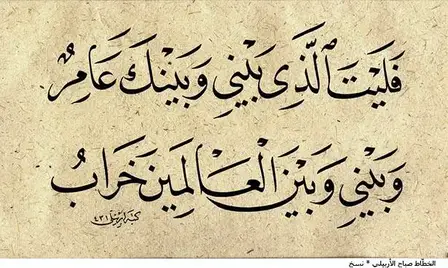 فَلَيْتَ ٱلَّذِي بَيْنِي وَبَيْنَكَ عَامِرٌ
وَبَيْنِي وَبَيْنَ الْعَالَمِينَ خَرَابُ
الخطّاط صباح الأربيلي * نسخ